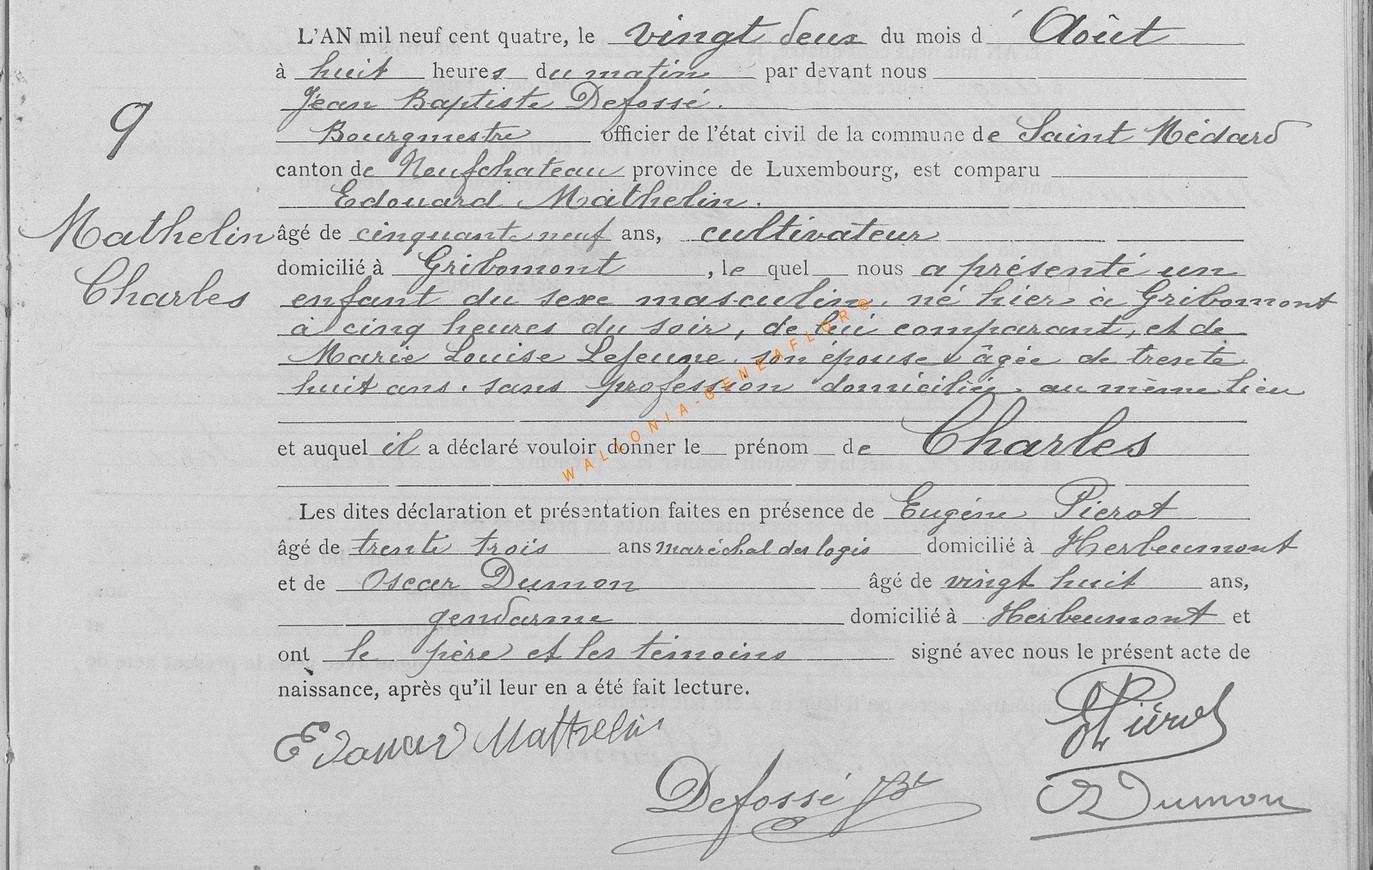 L'AN mil neuf cent quatre, le vingt deux du mois d' Août
à huit heures du matin par devant nous
Jean Baptiste Defossé.
Bourgmestre officier de l'état civil de la commune de Saint Médard
canton de Neufchateau province de Luxembourg, est comparu
Edouard Mathelin.
9
Mathelin
Charles
âgé de cinquante neuf ans, cultivateur
domicilié à Gribomont, le quel nous a présenté un
enfant du sexe masculin, né hier à Gribomont
à cinq heures du soir, de lui comparant, et de
Marie Louise Lefeune, son épouse, âgée de trente
huit ans. sans profession domiciliée au même lieu
et auquel il a déclaré vouloir donner le prénom de Charles
Les dites déclaration et présentation faites en présence de Eugéne Pierot
âgé de trente trois ans maréchal des logis domicilié à Herbeumont
et de Oscar Dumon âgé de vingt huit ans,
gendarme domicilié à Herbeumont et
ont le père et les témoins signé avec nous le présent acte de
naissance, après qu'il leur en a été fait lecture.
Edouard Mathelin
Pierot
Defossé JBt
Dumon
WALLONIA-GENEAFLORE